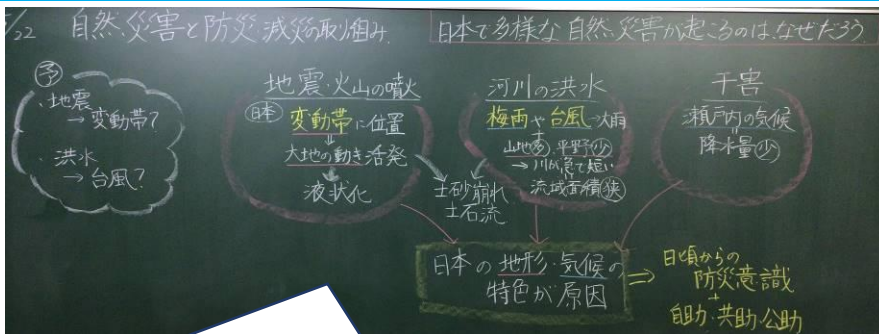 /22 自然災害と防災・減災の取り組み
日本で多様な自然災害が起こるのは、なぜだろう
予
・地震
→変動帯?
・洪水
→台風?
地震・火山の噴火
日本 変動帯に位置
⇓
大地の動き活発
⇓
液状化
土砂崩れ
土石流
河川の洪水
梅雨や台風→大雨
+
山地多、平野少
→川が急で短い
流域面積狭
干害
瀬戸内の気候
降水量少
日本の地形・気候の
特色が原因
⇒ 日頃からの
防災意識
+
自助・共助・公助